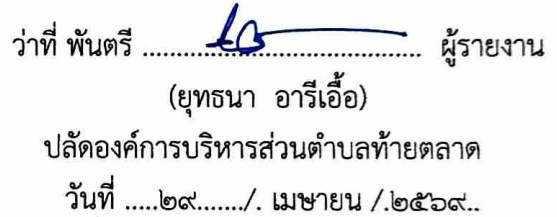 ว่าที่ พันตรี ........................................ ผู้รายงาน
(ยุทธนา อารีเอื้อ)
ปลัดองค์การบริหารส่วนตำบลท้ายตลาด
วันที่ .....๒๙......./. เมษายน /.๒๕๖๙..